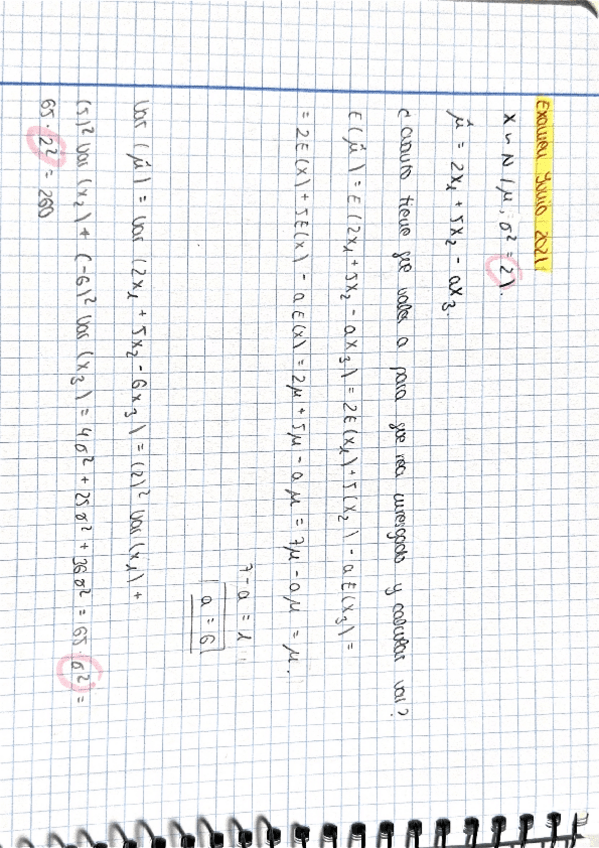 Examen Junio 2021:
X ~ N(μ; σ² = 2).
μ̂ = 2X₁ + 5X₂ - aX₃.
Cuánto tiene que valer a para que sea insesgado y calcular var?
E(μ̂) = E(2X₁ + 5X₂ - aX₃) = 2E(X₁) + 5E(X₂) - aE(X₃) =
= 2E(X) + 5E(X) - aE(X) = 2μ + 5μ - aμ = 7μ - aμ = μ.
7 - a = 1
a = 6
Var(μ̂) = Var(2X₁ + 5X₂ - 6X₃) = (2)² Var(X₁) +
(5)² Var(X₂) + (-6)² Var(X₃) = 4σ² + 25σ² + 36σ² = 65·σ² =
65·2² = 260